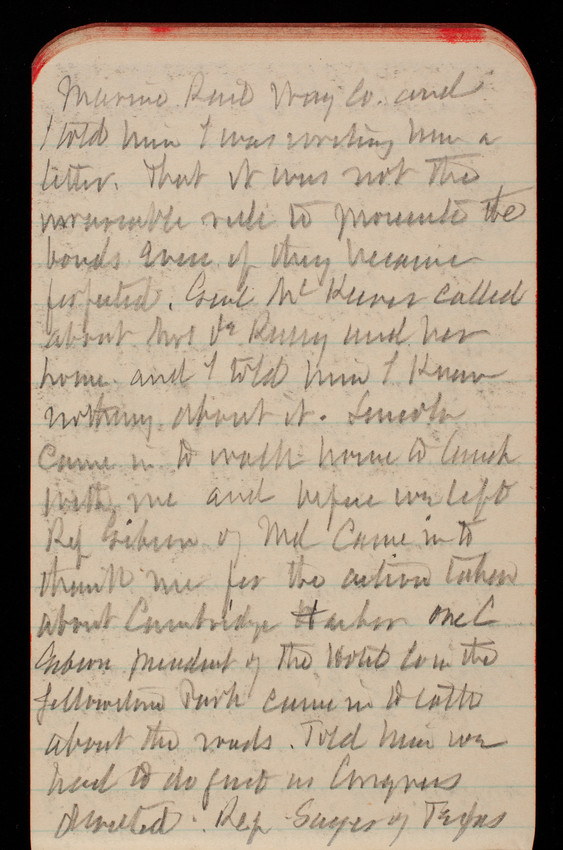 Marine Rail Way Co. and
I told him I was writing him a
letter. That it was not the
invariable rule to prosecute the
bonds even if they became
forfeited. Genl McKeever called
about Mrs De Rusy and her
home and I told him I knew
nothing about it. Lincoln
came in to walk home to lunch
with me and before we left
Rep Gibson of Md Came in to
thank me for the action taken
about Cambridge Harbor one C
Gibson president of the Hotel Co in the
Yellowstone Park came in to talk
about the roads. Told him we
had to do just as Congress
directed. Rep Sayers of Texas